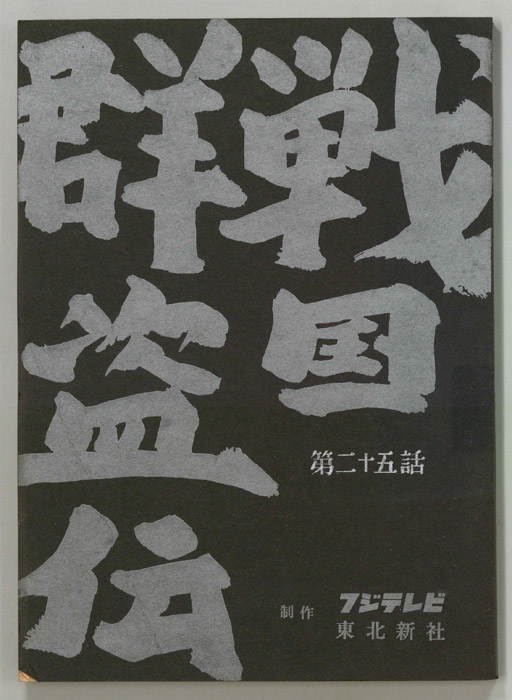 戦国
群盗伝
第二十五話
制作 フジテレビ
東北新社